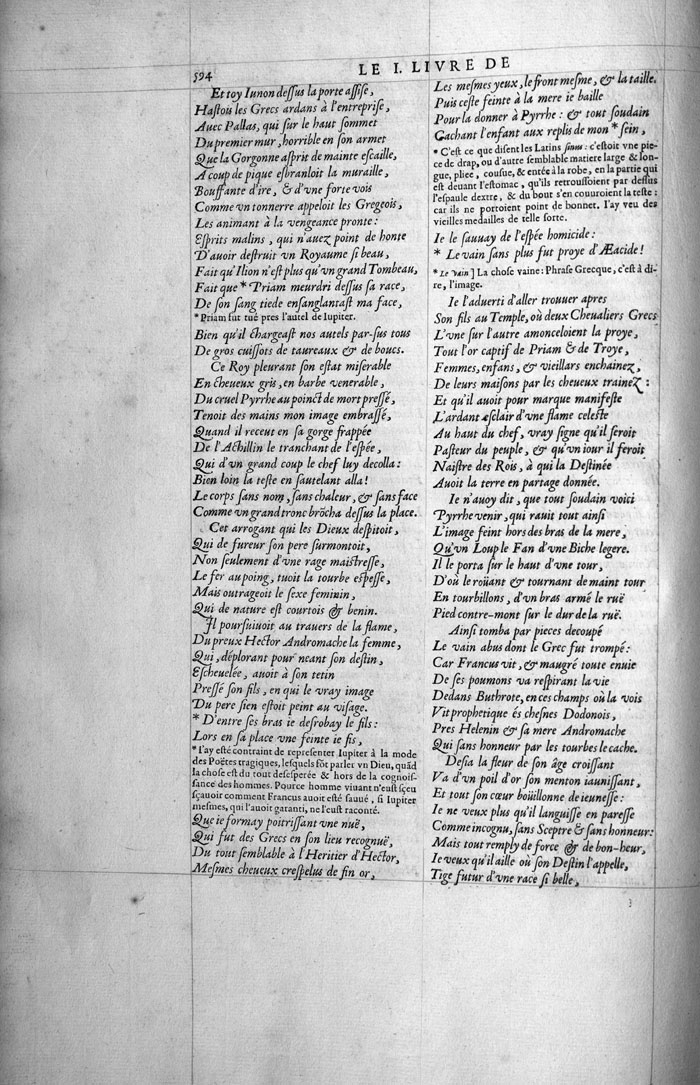 594
LE I. LIVRE DE
Et toy Iunon dessus la porte assise,
Hastois les Grecs ardans à l'entreprise,
Auec Pallas, qui sur le haut sommet
Du premier mur, horrible en son armet
Que la Gorgonne asprit de mainte escaille,
A coup de pique esbranloit la muraille,
Bouffante d'ire, & d'vne forte vois
Comme vn tonnerre appeloit les Gregeois,
Les animant à la vengeance pronte:
Esprits malins, qui n'auez point de honte
D'auoir destruit vn Royaume si beau,
Fait qu'Ilion n'est plus qu'vn grand Tombeau,
Fait que * Priam meurdri dessus sa race,
De son sang tiede ensanglantast ma face,
* Priam fut tué pres l'autel de Iupiter.
Bien qu'il chargeast nos autels par-sus tous
De gros cuissots de taureaux & de boucs.
Ce Roy pleurant son estat miserable
En cheueux gris, en barbe venerable,
Du cruel Pyrrhe au poinct de mort pressé,
Tenoit des mains mon image embrassé,
Quand il receut en sa gorge frappée
De l'Achillin le tranchant de l'espée,
Qui d'vn grand coup le chef luy decolla:
Bien loin la teste en sautelant alla!
Le corps sans nom, sans chaleur, & sans face
Comme vn grand tronc brõcha dessus la place.
Cet arrogant qui les Dieux despitoit,
Qui de fureur son pere surmontoit,
Non seulement d'vne rage maistresse,
Le fer au poing, tuoit la tourbe espesse,
Mais outrageoit le sexe feminin,
Qui de nature est courtois & benin.
Il poursuiuoit au trauers de la flame,
Du preux Hector Andromache la femme,
Qui, déplorant pour neant son destin,
Escheuelée, auoit à son tetin
Pressé son fils, en qui le vray image
Du pere sien estoit peint au visage.
* D'entre ses bras ie desrobay le fils:
Lors en sa place vne feinte ie fis,
* I'ay esté contraint de representer Iupiter à la mode
des Poëtes tragiques, lesquels fõt parler vn Dieu, quãd
la chose est du tout desesperée & hors de la cognois-
sance des hommes. Pource homme viuant n'eust sçeu
sçauoir comment Francus auoit esté sauué, si Iupiter
mesmes, qui l'auoit garanti, ne l'eust raconté.
Que ie formay poitrissant vne nuë,
Qui fut des Grecs en son lieu recognuë,
Du tout semblable à l'Heritier d'Hector,
Mesmes cheueux crespelus de fin or,
Les mesmes yeux, le front mesme, & la taille.
Puis ceste feinte à la mere ie baille
Pour la donner à Pyrrhe: & tout soudain
Cachant l'enfant aux replis de mon * sein,
* C'est ce que disent les Latins sinus: c'estoit vne pie-
ce de drap, ou d'autre semblable matiere large & lon-
gue, pliee, cousue, & entée à la robe, en la partie qui
est deuant l'estomac, qu'ils retroussoient par dessus
l'espaule dextre, & du bout s'en couuroient la teste:
car ils ne portoient point de bonnet. I'ay veu des
vieilles medailles de telle sorte.
Ie le sauuay de l'espée homicide:
* Le vain sans plus fut proye d'Æacide!
* Le vain] La chose vaine: Phrase Grecque, c'est à di-
re, l'image.
Ie l'aduerti d'aller trouuer apres
Son fils au Temple, où deux Cheualiers Grecs
L'vne sur l'autre amonceloient la proye,
Tout l'or captif de Priam & de Troye,
Femmes, enfans, & vieillars enchainez,
De leurs maisons par les cheueux trainez:
Et qu'il auoit pour marque manifeste
L'ardant esclair d'vne flame celeste
Au haut du chef, vray signe qu'il seroit
Pasteur du peuple, & qu'vn iour il feroit
Naistre des Rois, à qui la Destinée
Auoit la terre en partage donnée.
Ie n'auoy dit, que tout soudain voici
Pyrrhe venir, qui rauit tout ainsi
L'image feint hors des bras de la mere,
Qu'vn Loup le Fan d'vne Biche legere.
Il le porta sur le haut d'vne tour,
D'où le roüant & tournant de maint tour
En tourbillons, d'vn bras armé le ruë
Pied contre-mont sur le dur de la ruë.
Ainsi tomba par pieces decoupé
Le vain abus dont le Grec fut trompé:
Car Francus vit, & maugré toute enuie
De ses poumons va respirant la vie
Dedans Buthrote, en ces champs où la vois
Vit prophetique és chesnes Dodonois,
Pres Helenin & sa mere Andromache
Qui sans honneur par les tourbes le cache.
Desia la fleur de son âge croissant
Va d'vn poil d'or son menton iaunissant,
Et tout son cœur boüillonne de ieunesse:
Ie ne veux plus qu'il languisse en paresse
Comme incognu, sans Sceptre & sans honneur:
Mais tout remply de force & de bon-heur,
Ie veux qu'il aille où son Destin l'appelle,
Tige futur d'vne race si belle,